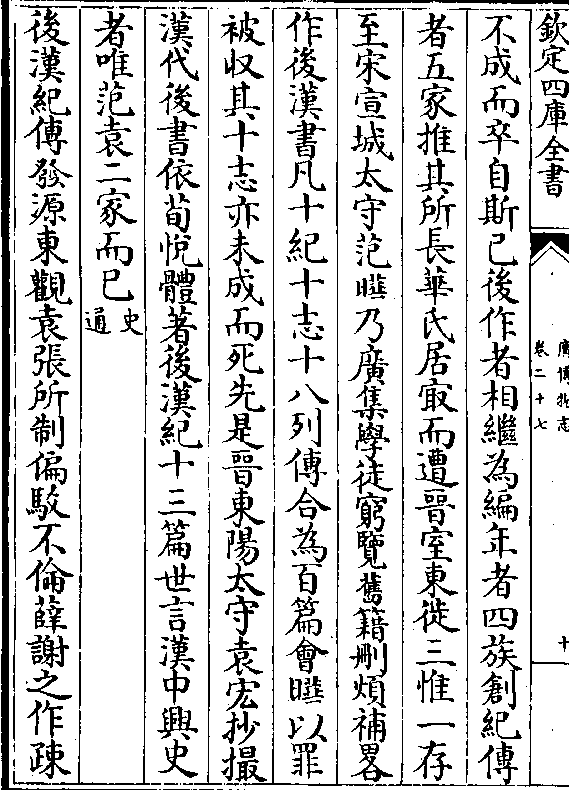 欽定四庫全書
廣博物志
卷二十七
十
不成而卒自斯已後作者相繼為編年者四族創紀傳
者五家推其所長華氏居㝡而遭晉室東徙三惟一存
至宋宣城太守范曄乃廣集學徒窮覽舊籍刪煩補畧
作後漢書凡十紀十志十八列傳合為百篇會曄以罪
被收其十志亦未成而死先是晉東陽太守袁宏抄撮
漢代後書依荀悅體著後漢紀十三篇世言漢中興史
者唯范袁二家而已史
通
後漢紀傳發源東觀袁張所制偏駁不倫薛謝之作疎